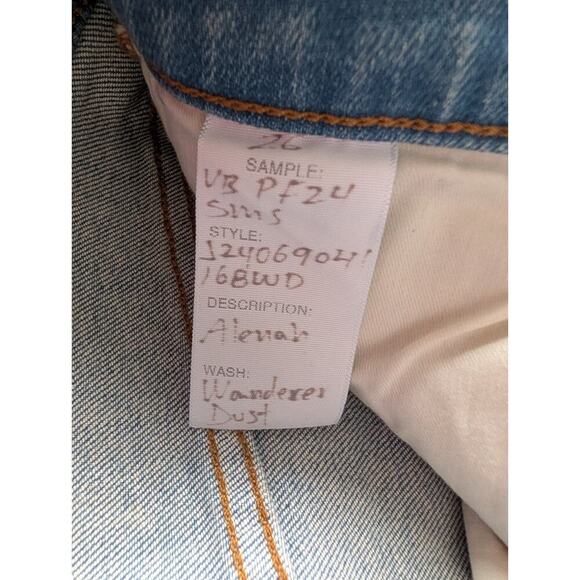 26
SAMPLE:
VB PF24
SMS
STYLE:
J24069041
168WD
DESCRIPTION:
Alenah
WASH:
Wanderer
Dust